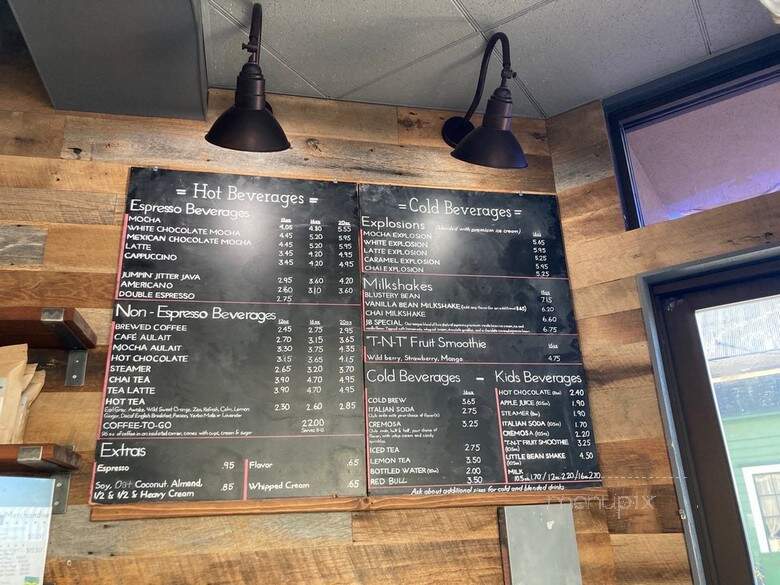 = Hot Beverages =
Espresso Beverages 12oz 16oz 20oz
MOCHA 4.05 4.80 5.55
WHITE CHOCOLATE MOCHA 4.45 5.20 5.95
MEXICAN CHOCOLATE MOCHA 4.45 5.20 5.95
LATTE 3.45 4.20 4.95
CAPPUCCINO 3.45 4.20 4.95
JUMPIN' JITTER JAVA 2.95 3.60 4.20
AMERICANO 2.60 3.10 3.60
DOUBLE ESPRESSO 2.75
Non - Espresso Beverages 12oz 16oz 20oz
BREWED COFFEE 2.45 2.75 2.95
CAFÉ AULAIT 2.70 3.15 3.65
MOCHA AULAIT 3.30 3.75 4.35
HOT CHOCOLATE 3.15 3.65 4.15
STEAMER 2.65 3.20 3.70
CHAI TEA 3.90 4.70 4.95
TEA LATTE 3.90 4.70 4.95
HOT TEA 2.30 2.60 2.85
Earl Grey, Awake, Wild Sweet Orange, Zen, Refresh, Calm, Lemon
Ginger, Decaf English Breakfast, Passion,
COFFEE-TO-GO 22.00
96 oz of coffee in an insulated carrier, comes with cups, cream & sugar
Extras
Espresso .95
Soy, Oat Coconut, Almond, .85
1/2 & 1/2 & Heavy Cream
Flavor .65
Whipped Cream .65
= Cold Beverages =
Explosions (blended with premium ice cream) 16oz
MOCHA EXPLOSION 5.65
WHITE EXPLOSION 5.95
LATTE EXPLOSION 5.25
CARAMEL EXPLOSION 5.95
CHAI EXPLOSION 5.25
Milkshakes 16oz
BLUSTERY BEAN 7.15
VANILLA BEAN MILKSHAKE (add any flavor for an additional $.65) 6.20
CHAI MILKSHAKE 6.60
JB SPECIAL 6.75
"T-N-T" Fruit Smoothie 16oz
Wild berry, Strawberry, Mango 4.75
Cold Beverages - 16oz
COLD BREW 3.65
ITALIAN SODA 2.75
(Club soda with your choice of flavor/s)
CREMOSA 3.25
(Club soda, half & half, your choice of
flavor, with whip cream and candy
sprinkles)
ICED TEA 2.75
LEMON TEA 3.50
BOTTLED WATER 2.00
RED BULL 3.50
Kids Beverages
HOT CHOCOLATE (8oz) 2.40
APPLE JUICE (10oz) 1.90
STEAMER (8oz) 1.90
ITALIAN SODA (10oz) 1.70
CREMOSA (10oz) 2.20
"T-N-T" FRUIT SMOOTHIE 3.25
(10oz)
LITTLE BEAN SHAKE 4.50
(10oz)
MILK
10.5oz 1.70 / 12oz 2.20 / 16oz 2.70
Ask about additional sizes for cold and blended drinks
menupix